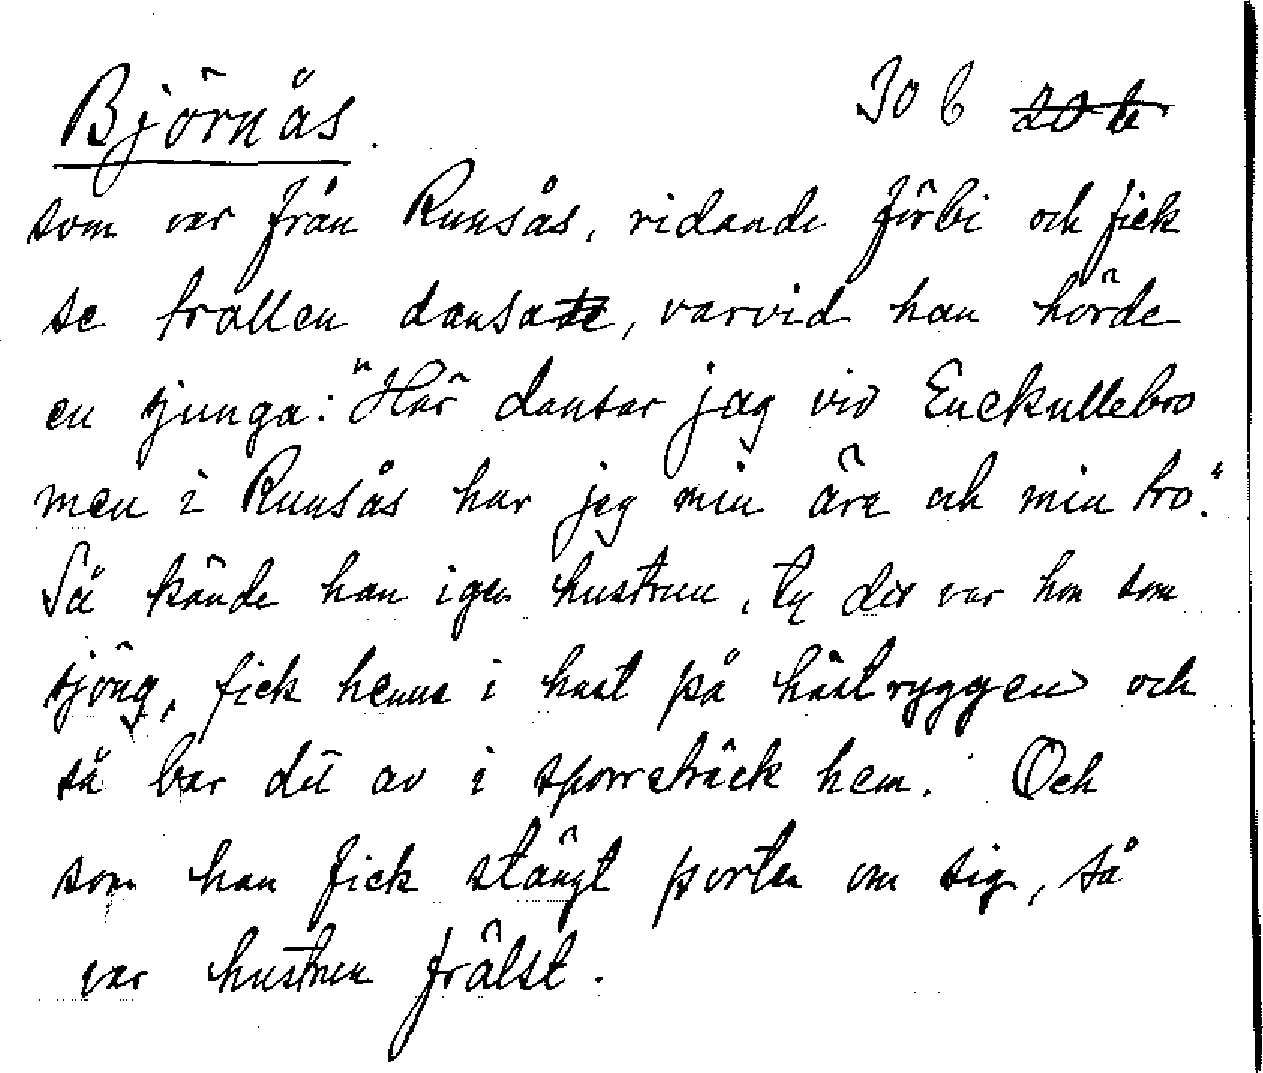 Björnås. 30 b
som var från Runsås, ridande förbi och fick
se trollen dansa, varvid han hörde
en sjunga: "Här dansar jag vid Enekullebro
men i Runsås har jag min äre och min tro."
Så kände han igen hustrun, ty det var hon som
sjöng, fick henne i hast på hästryggen och
så bar det av i sporrsträck hem. Och
som han fick stängt porten om sig, så
var hustrun frälst.